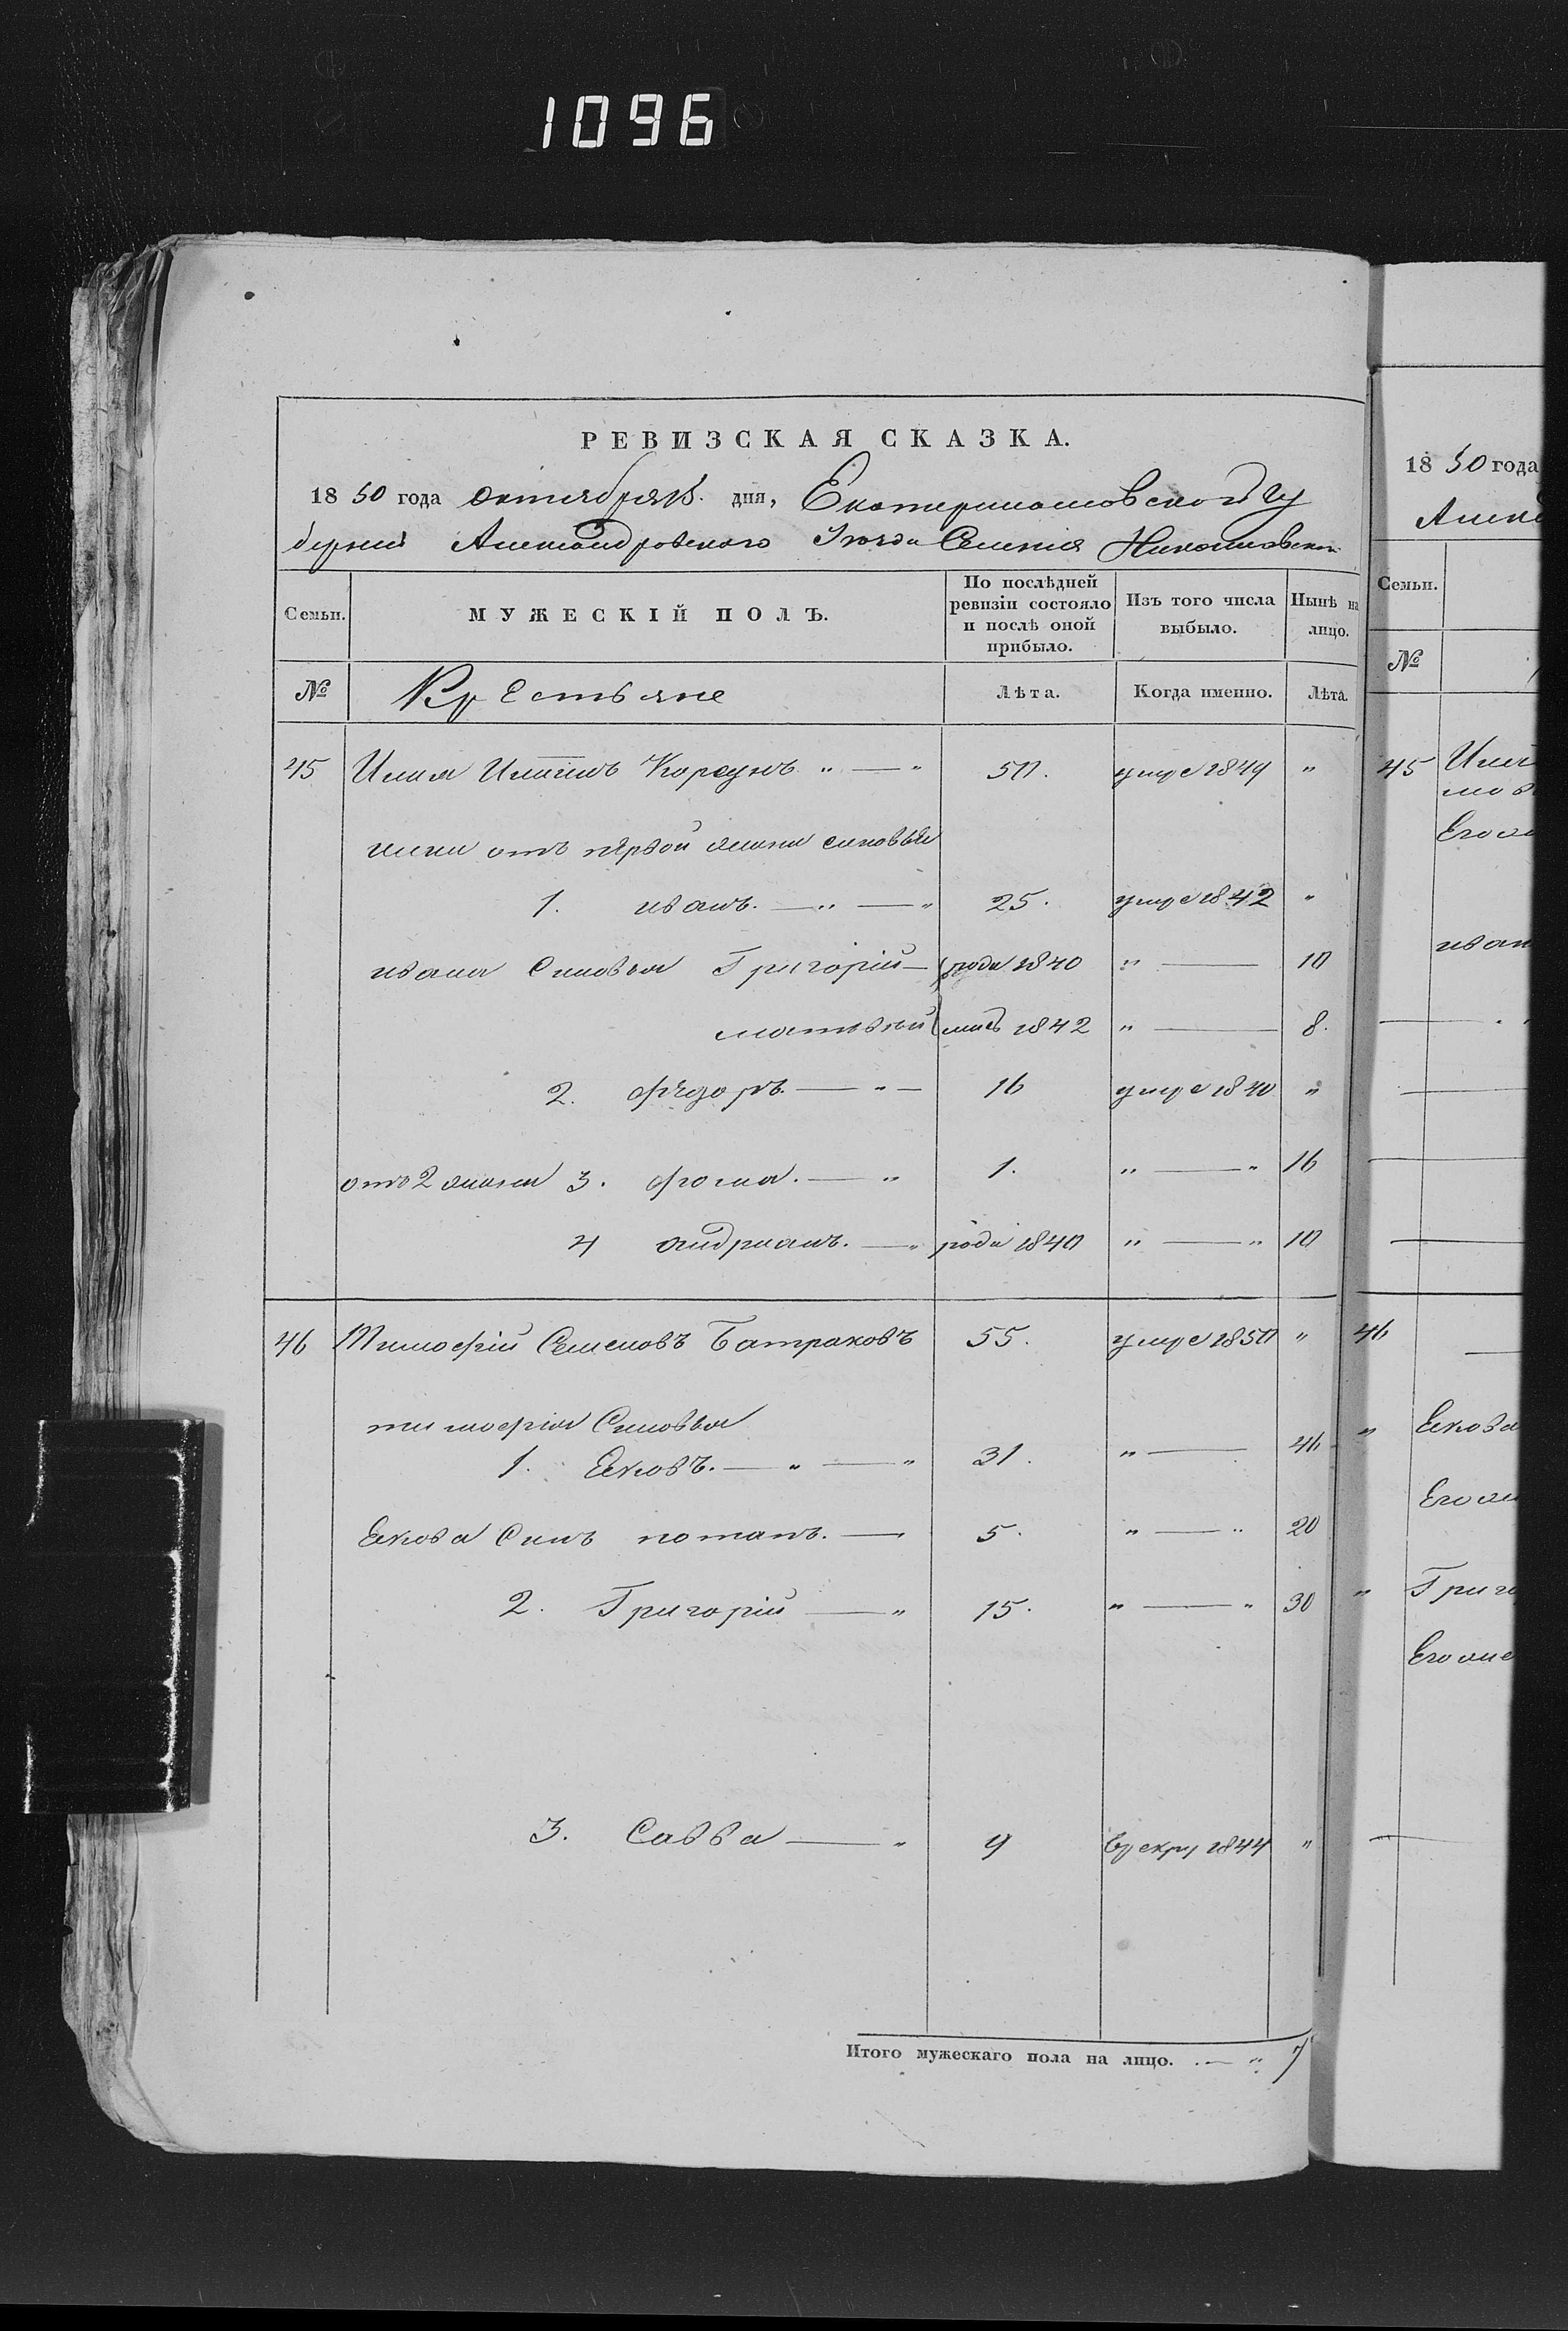 1096
РЕВИЗСКАЯ СКАЗКА.
1850 года октября 15. дня, Екатеринославской Гу
берніи Александровского Уезда Селенія Николаевской
Семьи. МУЖЕСКІЙ ПОЛЪ. По послѣдней ревизіи состояло и послѣ оной прибыло. Изъ того числа выбыло. Нынѣ на лицо.
№ Крестьяне Лѣта. Когда именно. Лѣта.
45 Илия Илiинъ Корсунъ " — " 50. умре 1849 "
илии отъ первой жини синовья
1. иванъ. — " — " 25. умре 1842 "
ивана Синовья Григорій — роди 1840 " — 10
матвей лись 1842 " — 8.
2. федоръ. — " — 16 умре 1840 "
отъ 2 жини 3. фома. — " 1. " — " 16
4 андрианъ. — " роди 1840 " — " 10
46 Тимофій Семеновъ Батраковъ 55. умре 1850 "
тимофія Синовья
1. Еяковъ. — " — " 31. " — 46
Еякова Синъ потапъ. — 5. " — " 20
2. Григорій — " 15. " — " 30
3. Савва — " 9 врекру 1844 "
Итого мужескаго пола на лицо. . — " 7
1850 года
Алекс
Семьи.
№
45 Илiи
Его
иван
46
" Еякова
Его жи
" Григо
Его же